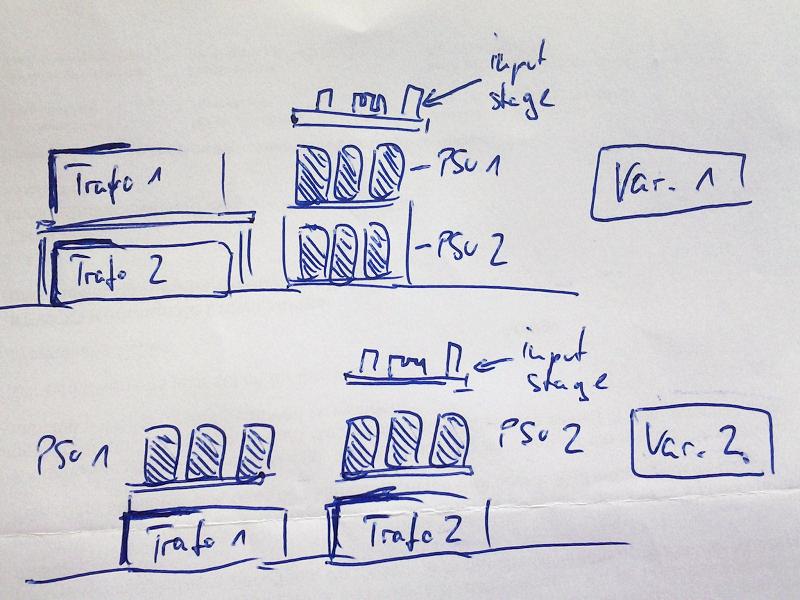 input
stage
Trafo 1
PSU 1
Var. 1
Trafo 2
PSU 2
input
stage
PSU 1
PSU 2
Var. 2.
Trafo 1
Trafo 2